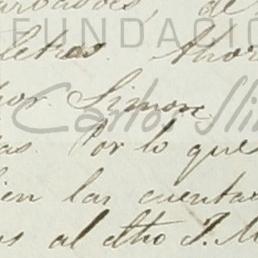 arbados, de
FUNDACIÓ
letras. Ahor
por Simon
Carlos Sli
as. Por lo que
ien las cuentas
s al dho J. M